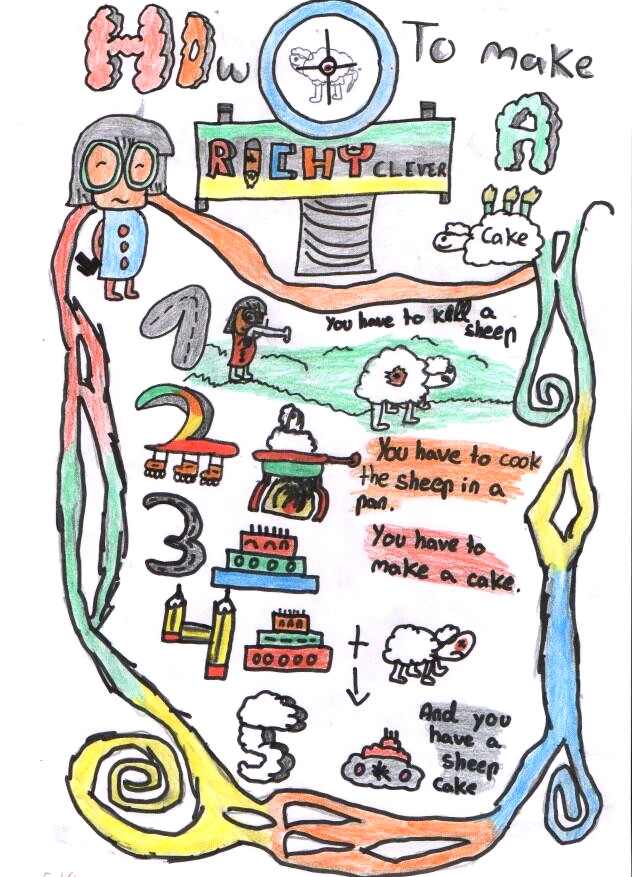 How To make
A
RICHY CLEVER
Cake
1
You have to kill a
sheep
2
You have to cook
the sheep in a
pan.
3
You have to
make a cake.
4
+
5
And you
have a
sheep
cake